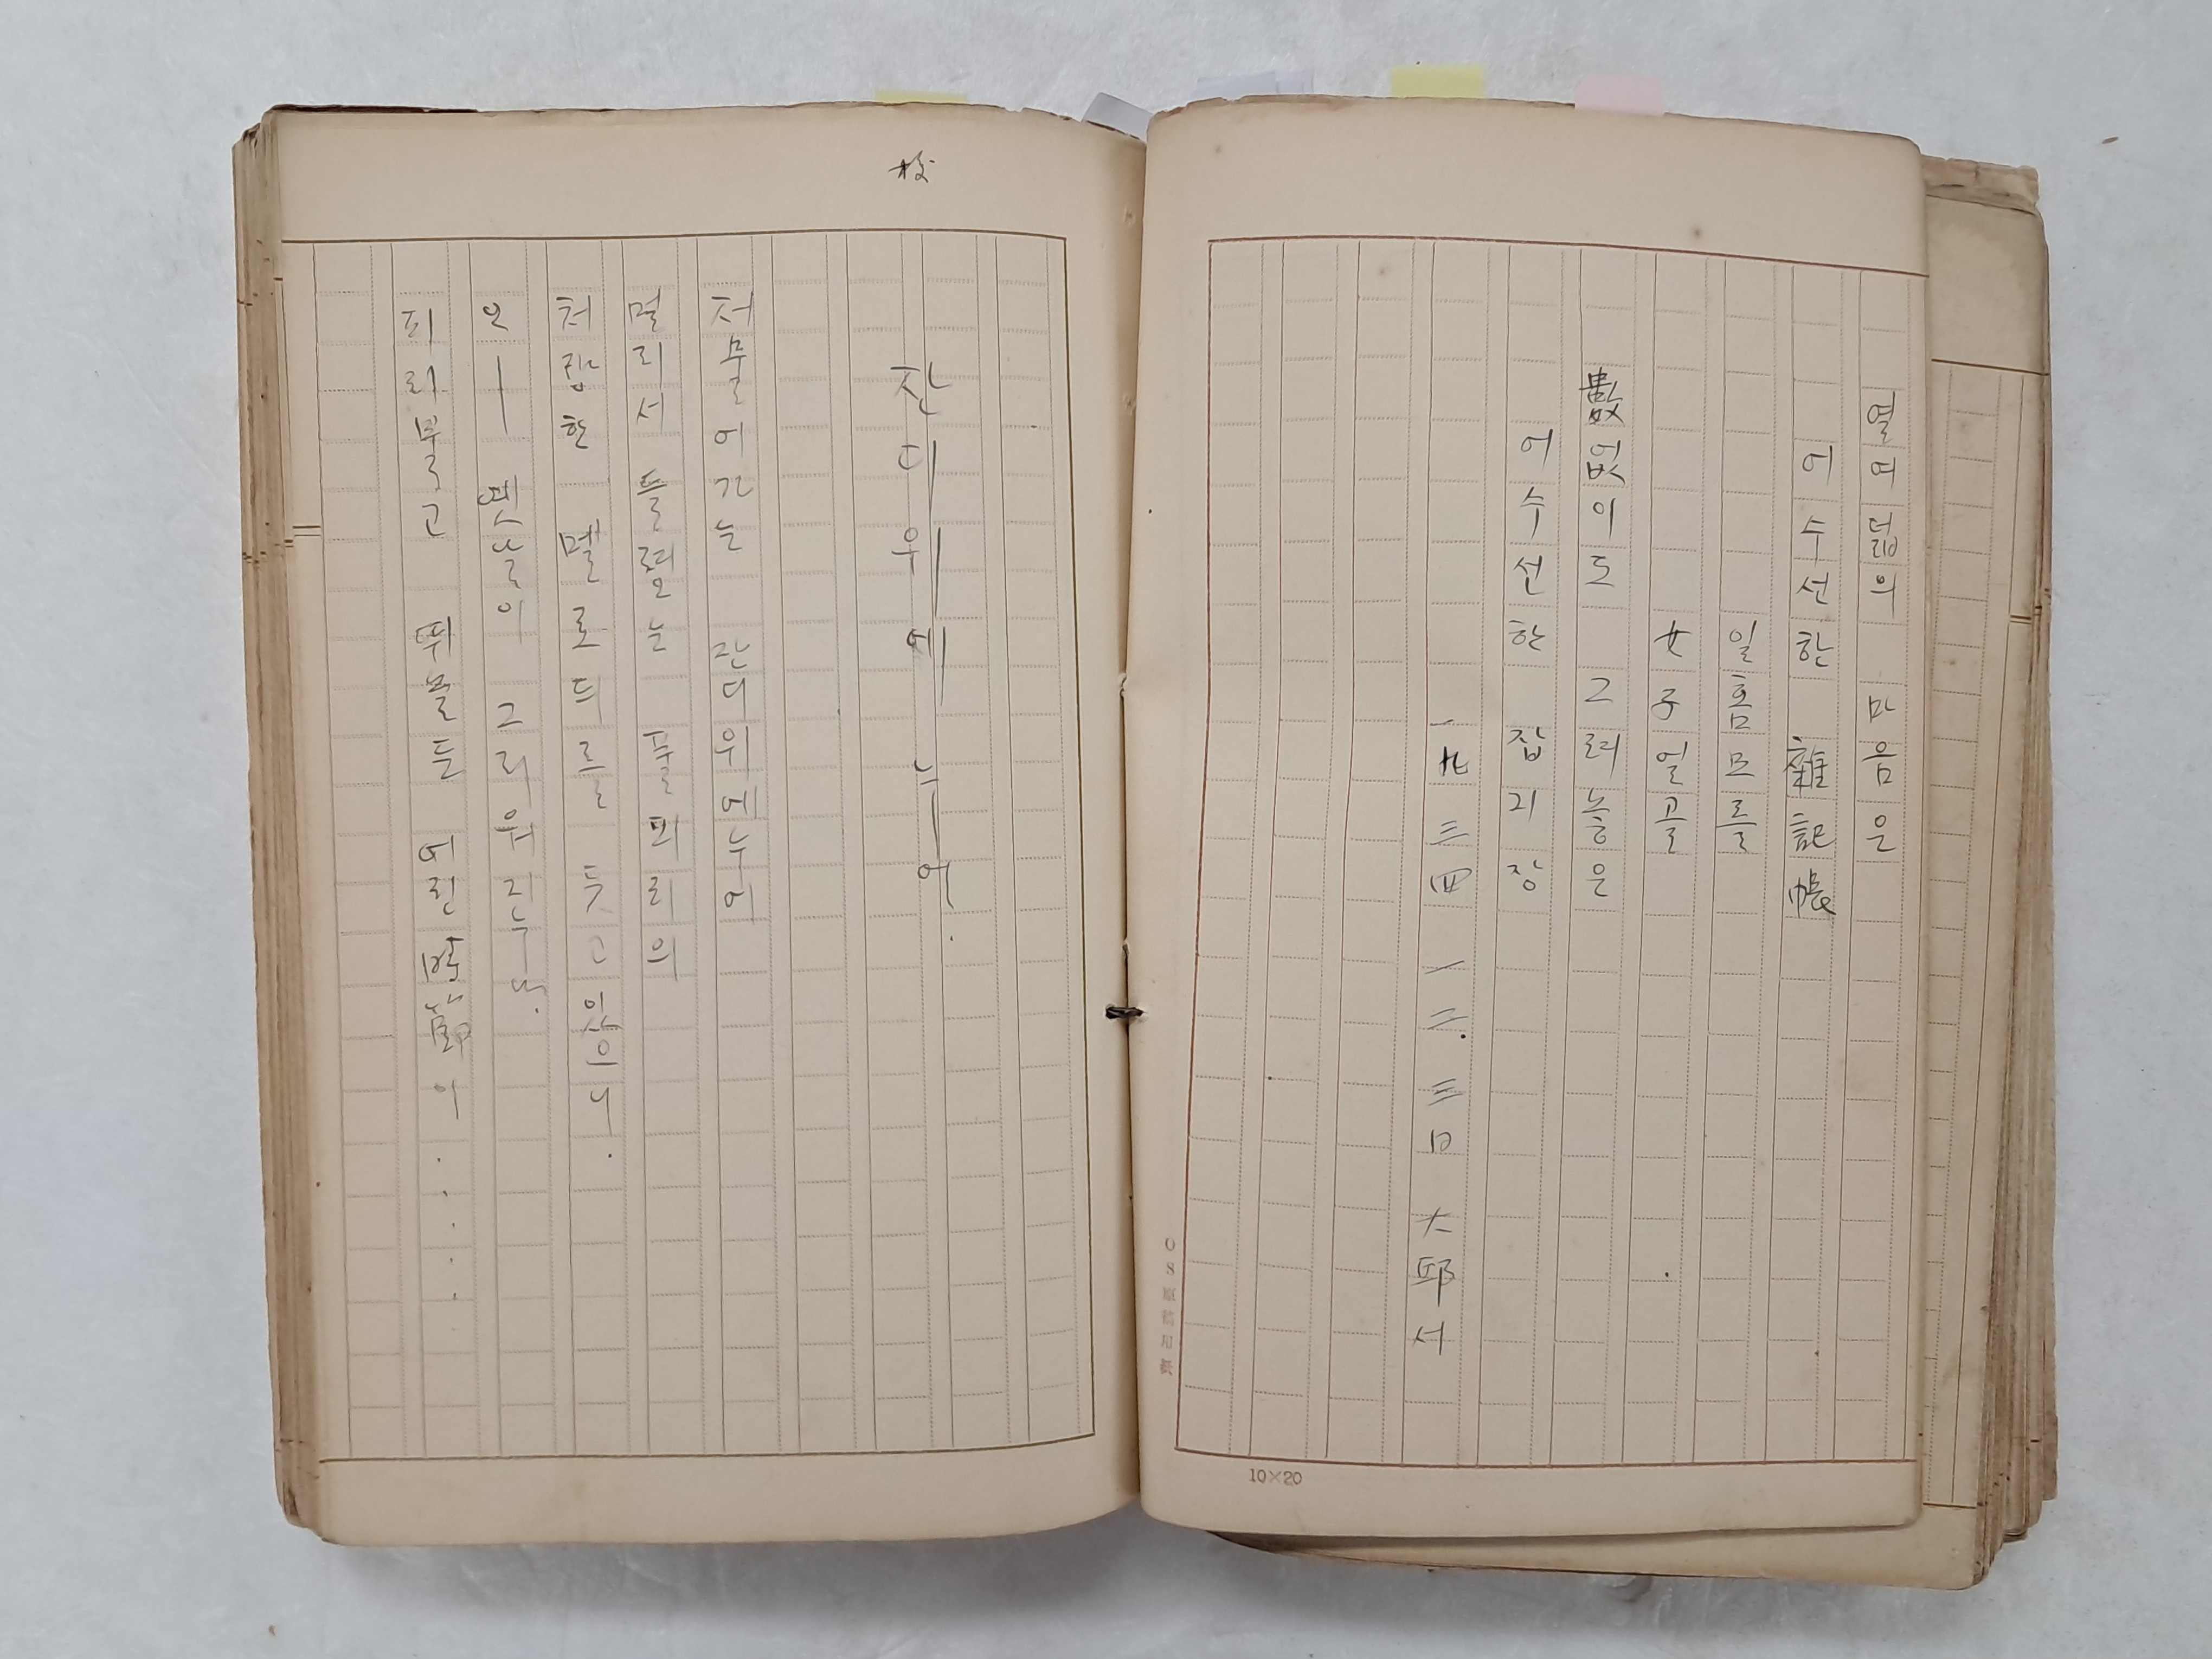 열여덟의 마음은
어수선한 雜記帳
일홈모를
女子얼골
數없이도 그려놓은
어수선한 잡기장
一九三四 一二. 三日 大邱서
OS原稿用紙
10×20
校
잔디위에 누어.
저물어가는 잔디위에누어
멀리서 들려오는 풀피리의
처량한 멜로듸를 듯고있으니.
오― 옛날이 그리워지누나.
피리불고 뛰놀든 어린時節이......